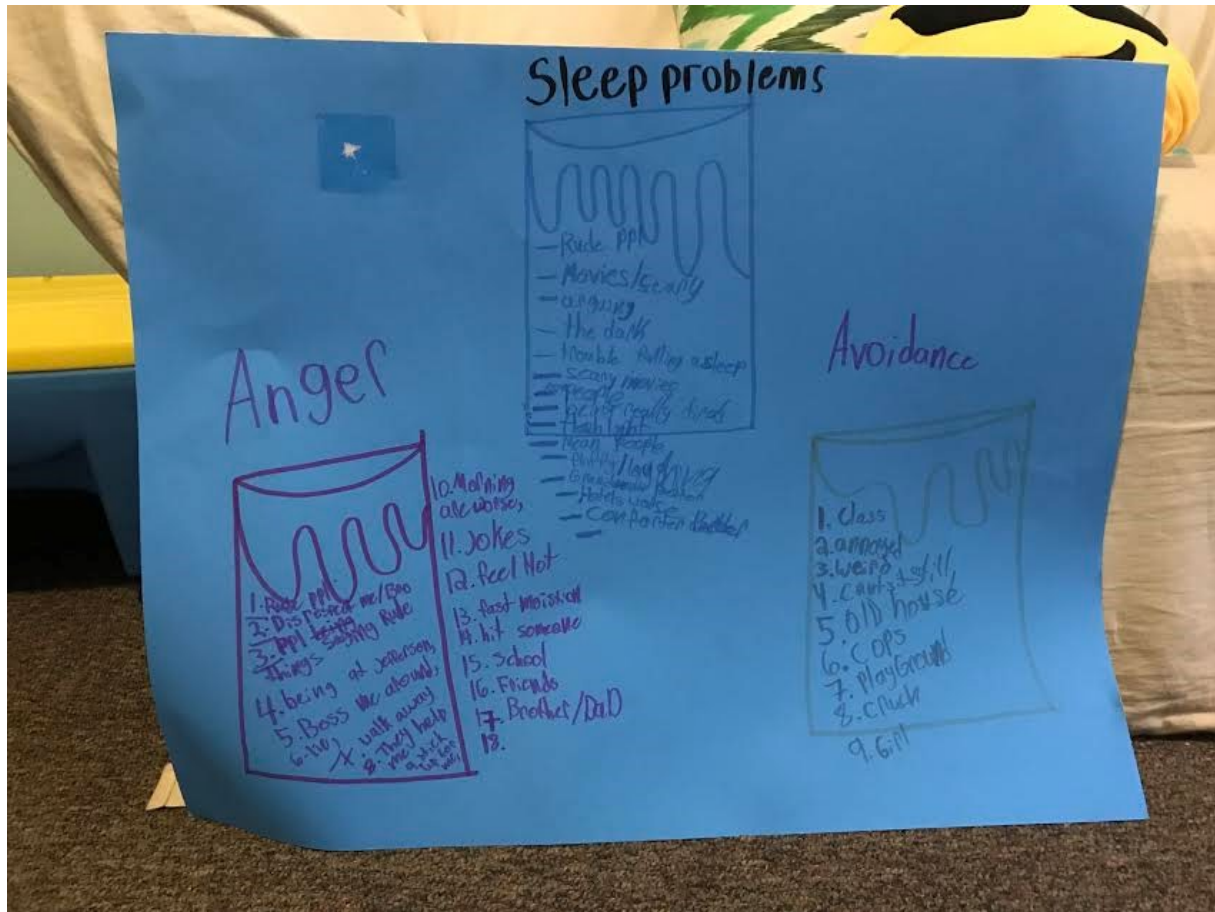 Sleep problems
– Rude ppl
– Movies/scary
– arguing
– the dark
– trouble falling asleep
– scary movies
people
being really tired
flash light
– Mean people
– Comforter
Anger
1. Rude ppl
2. Disrespect me/Bro
3. ppl being saying Rude
things
4. being at Jefferson,
5. Boss me around,
walk away
8. They help
me
10. Morning
are worse,
11. Jokes
12. feel Hot
13. fast moision
14. hit someone
15. School
16. Friends
17. Brother/DaD
18.
Avoidance
1. Class
2. annoyed
3. weird
5. Old house
6. COPS
7. PlayGround
8. Cruch
9. Girl